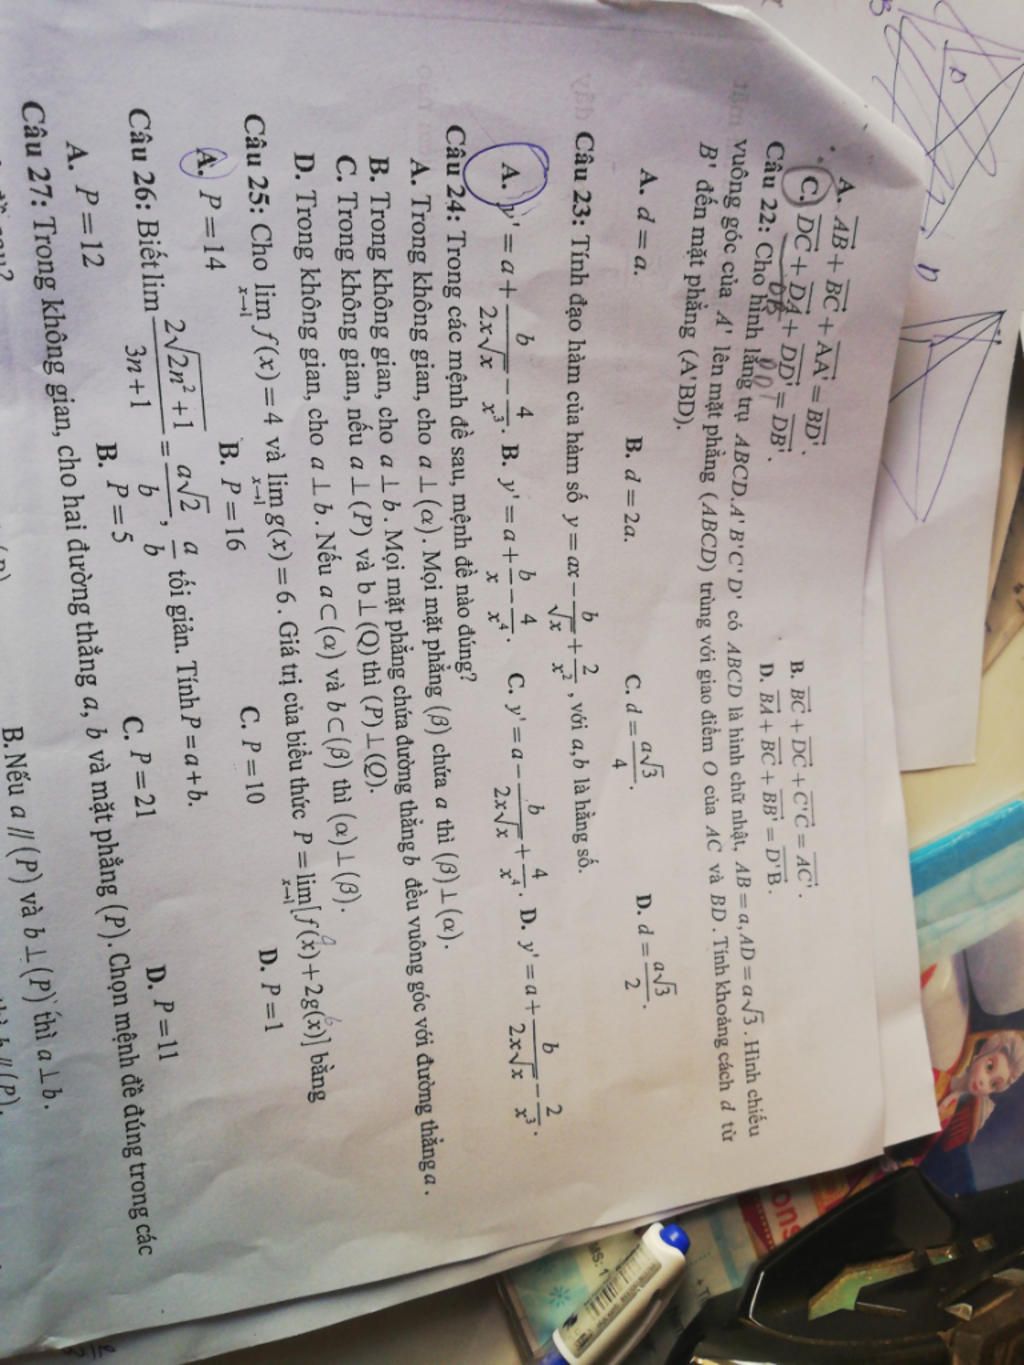 A. AB + BC + AA' = BD'.
B. BC + DC + C'C = AC'.
C. DC + DA + DD' = DB'.
D. BA + BC + BB' = D'B.
Câu 22: Cho hình lăng trụ ABCD.A'B'C'D' có ABCD là hình chữ nhật, AB = a, AD = a√3. Hình chiếu
vuông góc của A' lên mặt phẳng (ABCD) trùng với giao điểm O của AC và BD. Tính khoảng cách d từ
B' đến mặt phẳng (A'BD).
A. d = a. B. d = 2a. C. d = a√3/4. D. d = a√3/2.
Câu 23: Tính đạo hàm của hàm số y = ax − b/√x + 2/x², với a,b là hằng số.
A. y' = a + b/(2x√x) − 4/x³. B. y' = a + b/x − 4/x⁴. C. y' = a − b/(2x√x) + 4/x⁴. D. y' = a + b/(2x√x) − 2/x³.
Câu 24: Trong các mệnh đề sau, mệnh đề nào đúng?
A. Trong không gian, cho a ⊥ (α). Mọi mặt phẳng (β) chứa a thì (β) ⊥ (α).
B. Trong không gian, cho a ⊥ b. Mọi mặt phẳng chứa đường thẳng b đều vuông góc với đường thẳng a.
C. Trong không gian, nếu a ⊥ (P) và b ⊥ (Q) thì (P) ⊥ (Q).
D. Trong không gian, cho a ⊥ b. Nếu a ⊂ (α) và b ⊂ (β) thì (α) ⊥ (β).
Câu 25: Cho lim x→1 f(x) = 4 và lim x→1 g(x) = 6. Giá trị của biểu thức P = lim x→1 [f(x) + 2g(x)] bằng
A. P = 14 B. P = 16 C. P = 10 D. P = 1
Câu 26: Biết lim 2√(2n² + 1)/(3n + 1) = a√2/b, a/b tối giản. Tính P = a + b.
A. P = 12 B. P = 5 C. P = 21 D. P = 11
Câu 27: Trong không gian, cho hai đường thẳng a, b và mặt phẳng (P). Chọn mệnh đề đúng trong các
B. Nếu a // (P) và b ⊥ (P) thì a ⊥ b.